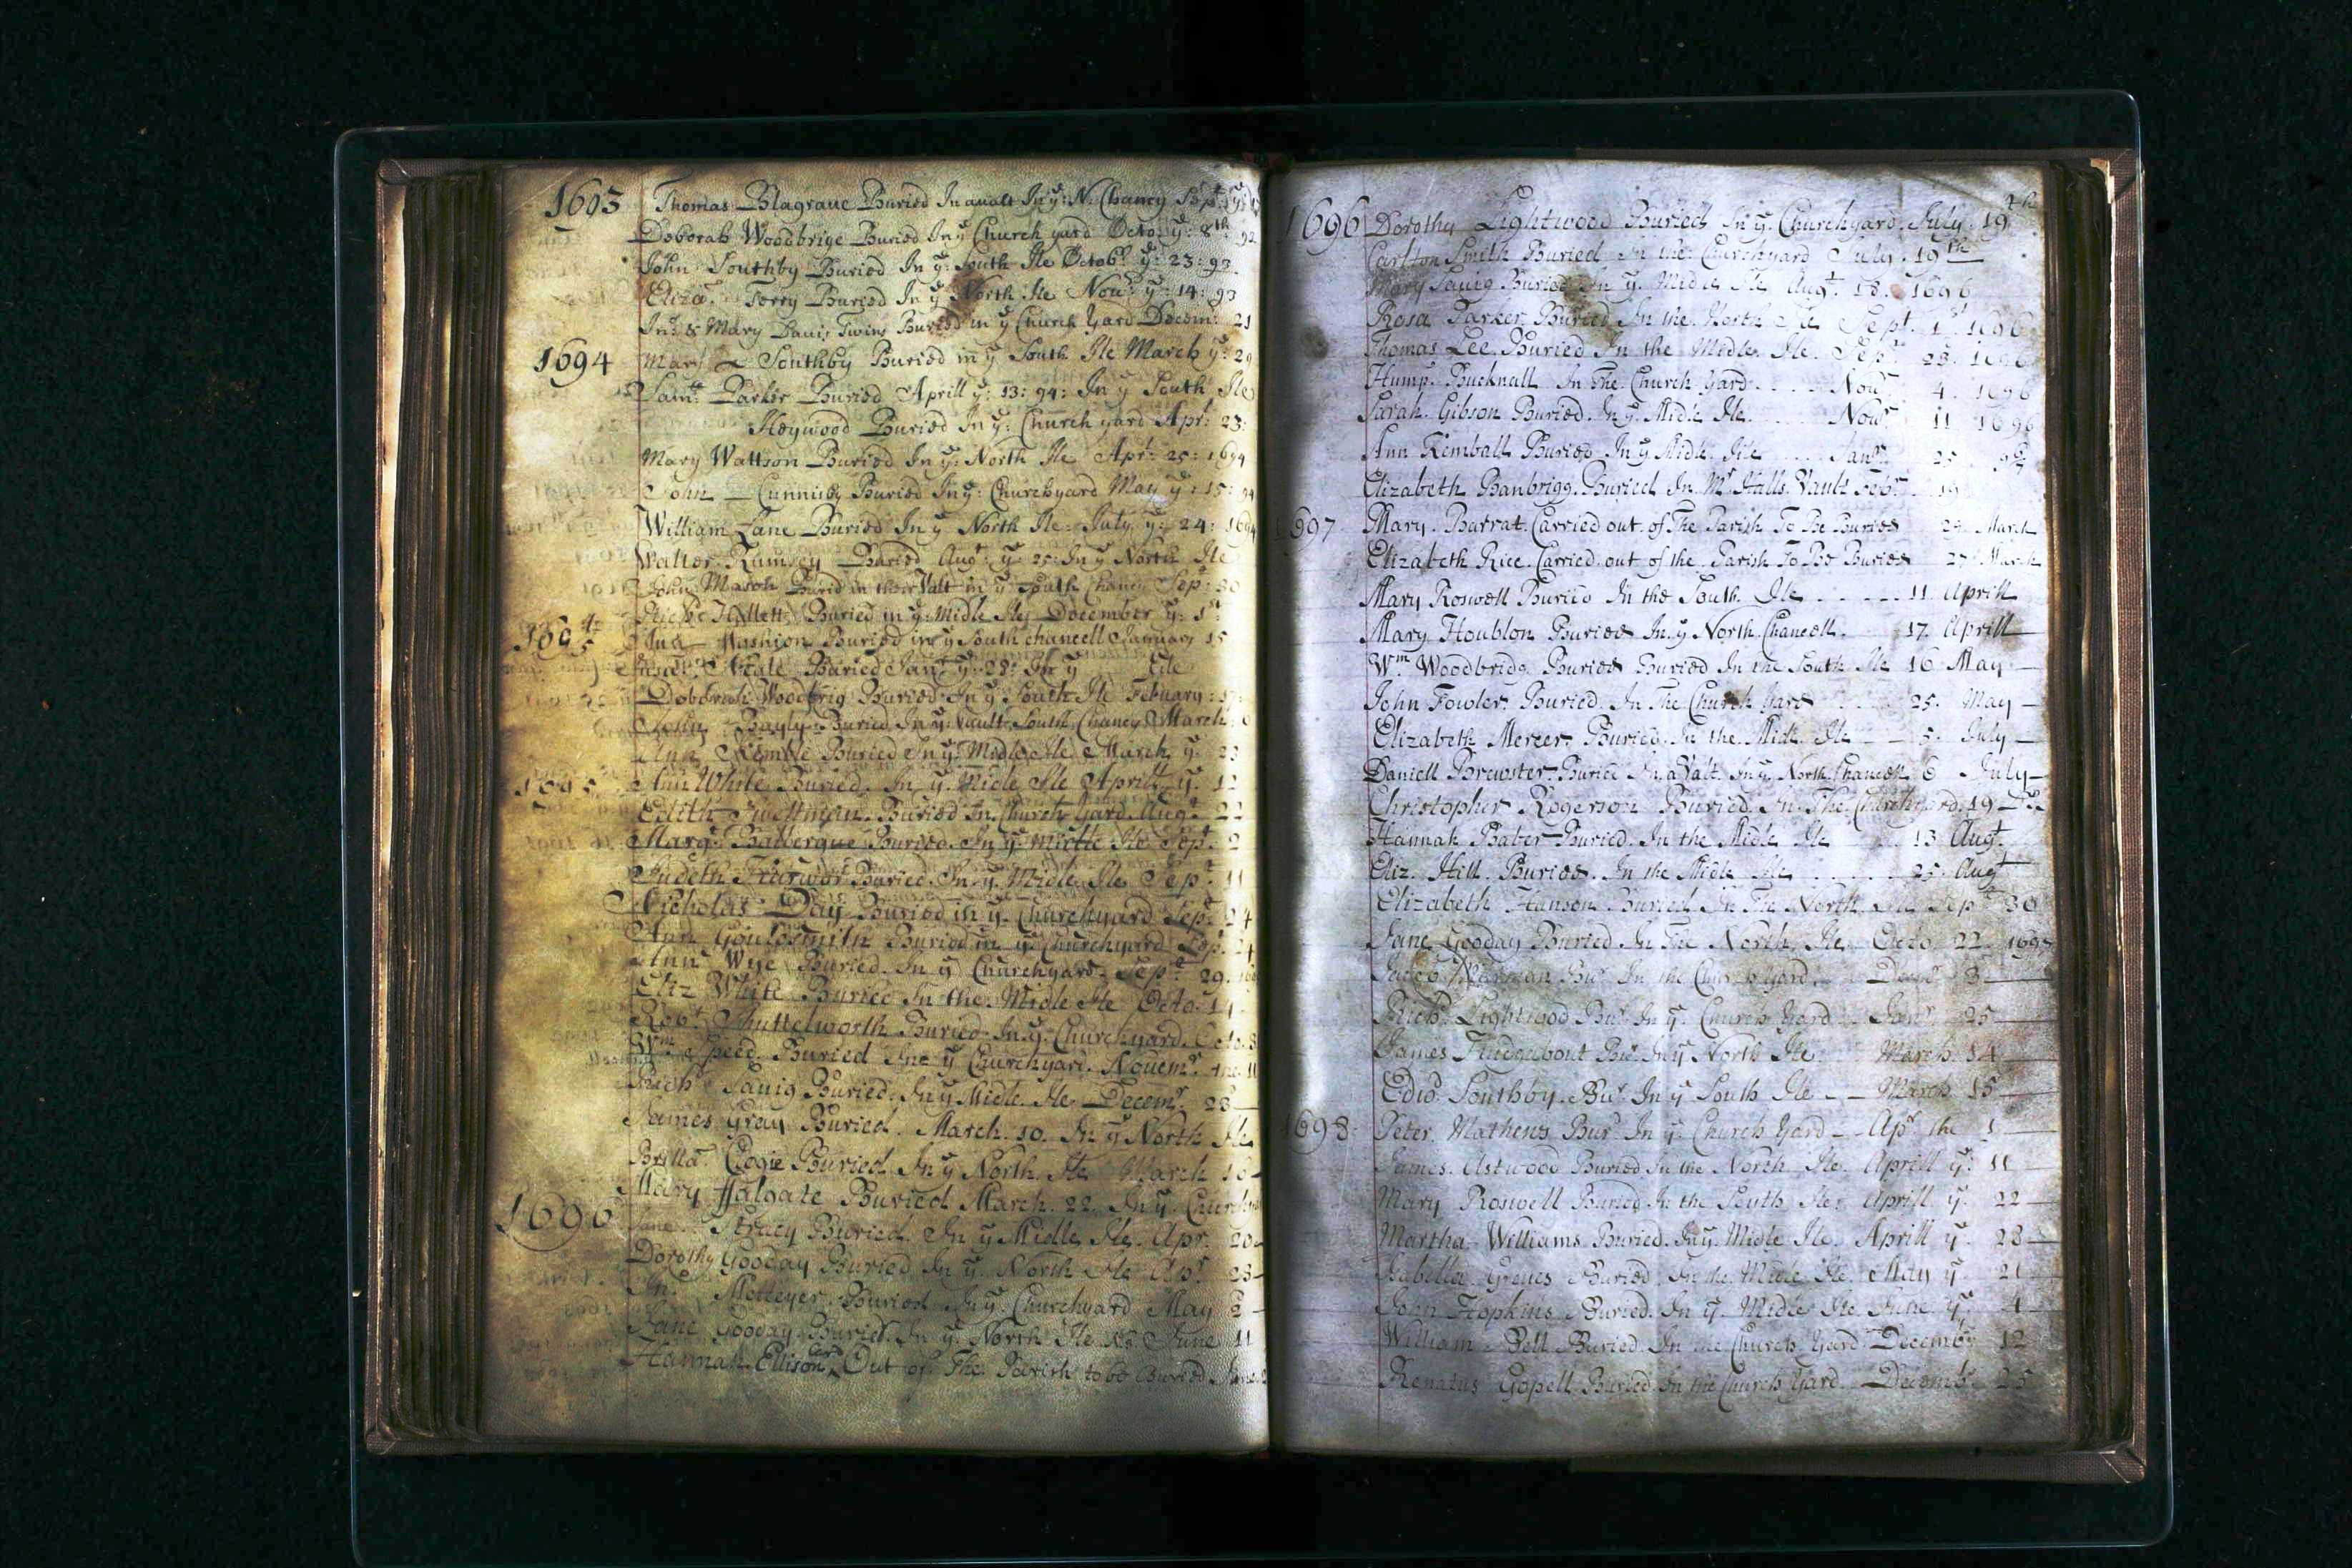 1693 Thomas Blagraue Buried In a valt In yͤ: N. Chancy Sepͭ
Deborah Woodbrige Buried In yͤ Church yard Octo. yͤ: 8th
John Southby Buried In yͤ: South Ile Octobʳ yͤ: 23: 93
Elizaᵃ. Terry Buried In yͤ North Ile Nouʳ yͤ: 14: 93
Jnᵒ & Mary Dauis Twins Buried in yͤ Church Yard Decemʳ 21
1694 Mary Southby Buried in yͤ South Ile March yͤ: 29
Samˡˡ Parker Buried Aprill yͤ: 13: 94: In yͤ South Ile
Heywood Buried In yͤ: Church yard Apr: 23:
Mary Wattson Buried In yͤ: North Ile Apr: 25: 1694
John Buried In yͤ: Churchyard May yͤ: 15: 94
William Lane Buried In yͤ North Ile July yͤ: 24: 1694
Walter Rumsey Buried Augᵗ yͤ 25: In yͤ North Ile
John Mason Buried in their Valt in yͤ South Chancy Sep: 30
Buried in yͤ: Midle Ile December yͤ: 1ˢᵗ
169⁴⁄₅ Buried in yͤ South chancell January 15
Buried Janʳ yͤ: 28: In yͤ Ile
Deborah Woodbrig Buried In yͤ South Ile Febuary: 17:
Bayly Buried In yͤ: Vault South Chancy March
Ann Kemble Buried In yͤ Midle Ile March yͤ. 23
1695 Ann White Buried. In yͤ. Midle Ile Aprill yͤ. 12
Edith Buried In Church Yard Augᵗ 22
Margᵗ Buried. In yͤ Midle Ile Sepᵗ. 2
Judeth Buried. In yͤ. Midle. Ile Sepᵗ. 11
Nicholas Day Buried in yͤ. Churchyard Sepᵗ 24
Ann Gouldsmith Buried in yͤ Churchyard Sep. 24
Ann Wye Buried. In yͤ Churchyard. Sepᵗ 29.
Eliz White Buried In the. Midle Ile Octo. 14
Robᵗ Shuttelworth Buried. In yͤ. Churchyard. Octo.
Wᵐ Speed Buried Ine yͤ Churchyard. Nouemʳ. the 11
Richᵈ Sauig Buried. In yͤ Midle. Ile Decemʳ. 28
James Gray Buried. March. 10. In yͤ North Ile
Buried In yͤ North. Ile March 18
Mary Halgate Buried March. 22. In yͤ. Church
1696 Jane Stracy Buried. In yͤ Midle Ile. Apr. 20
Dorothy Gooday Buried In yͤ. North Ile Apʳ. 23
Jnᵒ. Metteyer Buried In yͤ. Churchyard May 2
Jane Gooday Buried. In yͤ. North Ile June 11
Hannah Ellison Card Out of The Parish to be Buried. June
1696 Dorothy Lightwood Buried In yͤ. Churchyard. July. 19th
Carlton Smith Buried In the Churchyard July. 19th
Mary Sauig Buried In yͤ. Midle Ile Augᵗ. 18. 1696
Rosa Parker Buried In the. North Ile Sepᵗ. 1ˢᵗ 1696
Thomas Lee Buried In the Midle. Ile. Sepᵗ. 28. 1696
Humpʰ Bucknall In The Church Yard . . . . Nouʳ 4. 1696
Sarah Gibson Buried. In yͤ. Midle Ile. . . . Nouʳ 11 1696
Ann Kemball Buried In yͤ Midle. Ile . . . Janʳʸ. 25 96⁄7
Elizabeth Banbrigg. Buried In. Mʳ. Halls. Vault Febʳ. 19
1697 Mary. Barrat. Carried out of The Parish To Be Buried 25 March
Elizabeth Rice. Carried out of the Parish To Be Buried 27 March
Mary Roswell Buried In the South Ile . . . . . 11. Aprill
Mary Houblon Buried In. yͤ North. Chancell. 17. Aprill
Wᵐ Woodbridg. Buried Buried In the South Ile 16 May.
John Fowler. Buried. In The Church Yard . . . . 25. May
Elizabeth Mercer. Buried. In the. Midle Ile 5. July
Daniell Brewster. Buried In. a Valt. In yͤ. North Chancell 6 July
Christopher Rogerson Buried. In. The. Churchyard. 19
Hannah Baber Buried. In the Midle Ile 13 Augᵗ.
Eliz. Hill. Buried. In the Midle Ile . . . . . 25. Augᵗ
Elizabeth Hanson Buried In The North. Ile Sepᵗ 30
Jane Gooday Buried In The North. Ile Octo. 22.
Jacob Warman Buʳ In the Church Yard. Decemʳ 3
Richᵈ. Lightwood Buʳ. In yͤ. Church Yard Janʳ. 25
James Fludgabout Buʳ. In yͤ North Ile March. 14
Edwᵈ. Southby. Buʳ In yͤ South Ile March 15
1698 Peter. Mathews Buʳ In yͤ. Church Yard Apʳ the 1
James. Astwood Buried In the North. Ile. Aprill yͤ. 11
Mary Roswell Buried In the South Ile: Aprill yͤ. 22
Martha Williams Buried. In yͤ. Midle Ile. Aprill yͤ. 28
Isabella Greues Buried. In the Midle Ile May yͤ. 21
John Hopkins Buried. In yͤ. Midle Ile June yͤ. 4
William Pell Buried. In the Church Yard Decembʳ. 12
Renatus Gopell Buried In the Church Yard. Decembʳ. 25